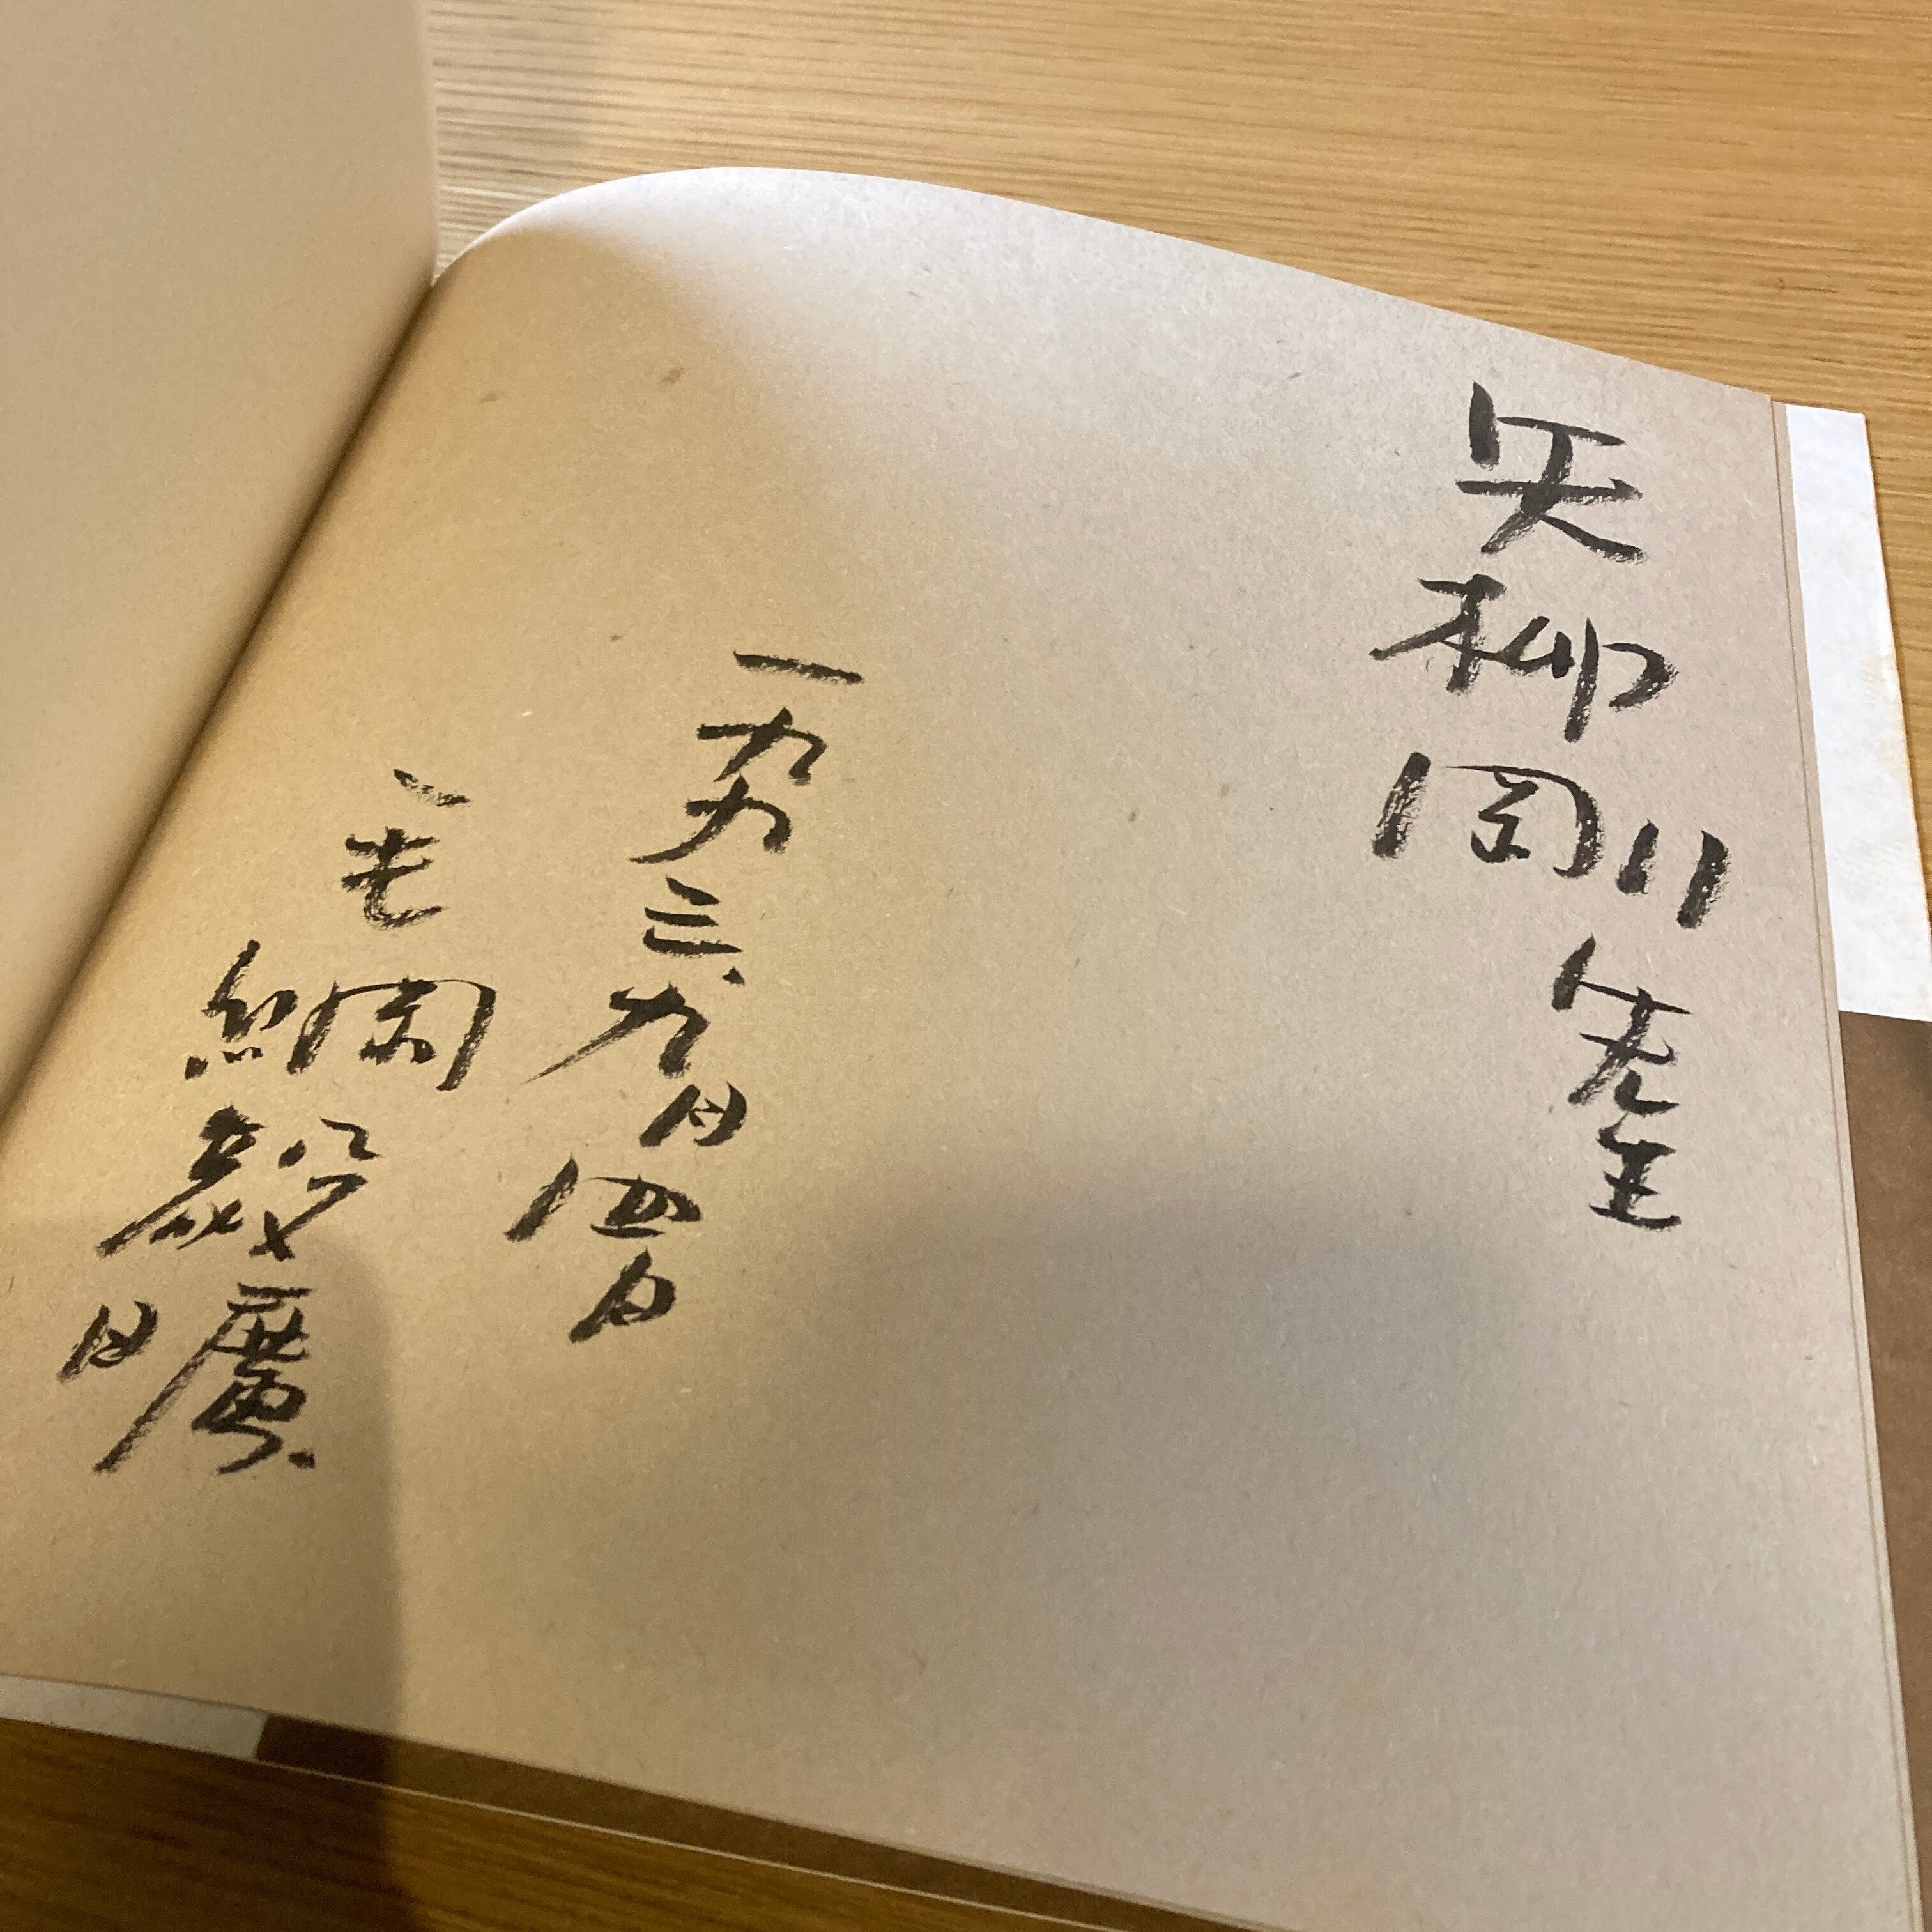 矢柳剛先生
一九九三、九月四日
毛綱毅曠